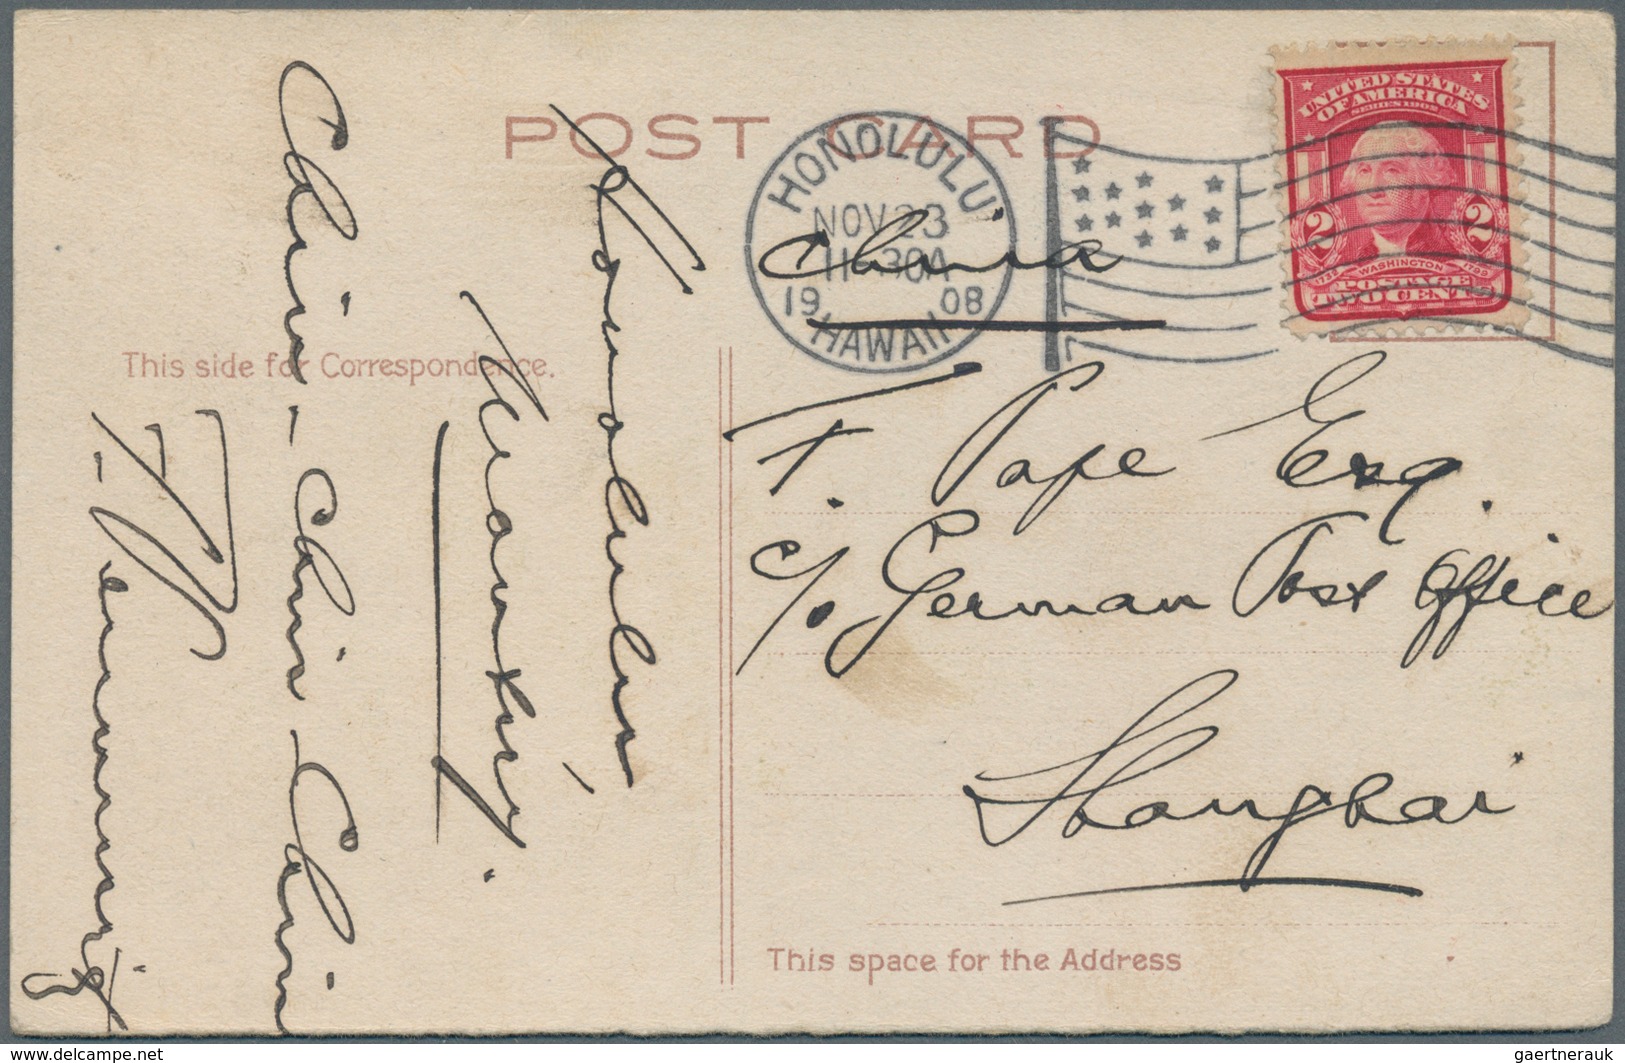 POST CARD
HONOLULU
NOV 23
11-30A
19 08
HAWAII
UNITED STATES
OF AMERICA
SERIES 1902
2 2
1732 WASHINGTON 1799
POSTAGE
TWO CENTS
China
This side for Correspondence.
F. Pape Esq.
c/o German Post Office
Shanghai
This space for the Address
Honolulu,
Chin-Chin-Chin
www.delcampe.net
gaertnerauk